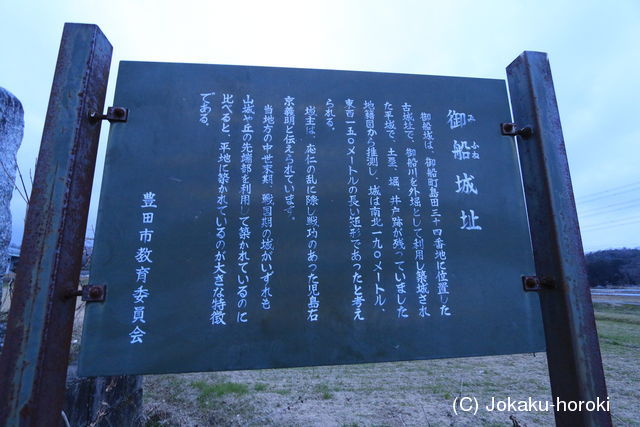 みふね
御船城址
御船城は、御船町島田三十四番地に位置した
古城址で、御船川を外堀として利用し築城され
た平城で、土塁、堀、井戸跡が残っていました
地籍図から推測し、城は南北一九〇メートル、
東西一五〇メートルの長い矩形であったと考え
られる。
城主は、応仁の乱に際し戦功のあった児島右
京義明と伝えられています。
当地方の中世末期、戦国期の城がいずれも
山城や丘の先端部を利用して築かれているのに
比べると、平地に築かれているのが大きな特徴
である。
豊田市教育委員会
(C) Jokaku-horoki